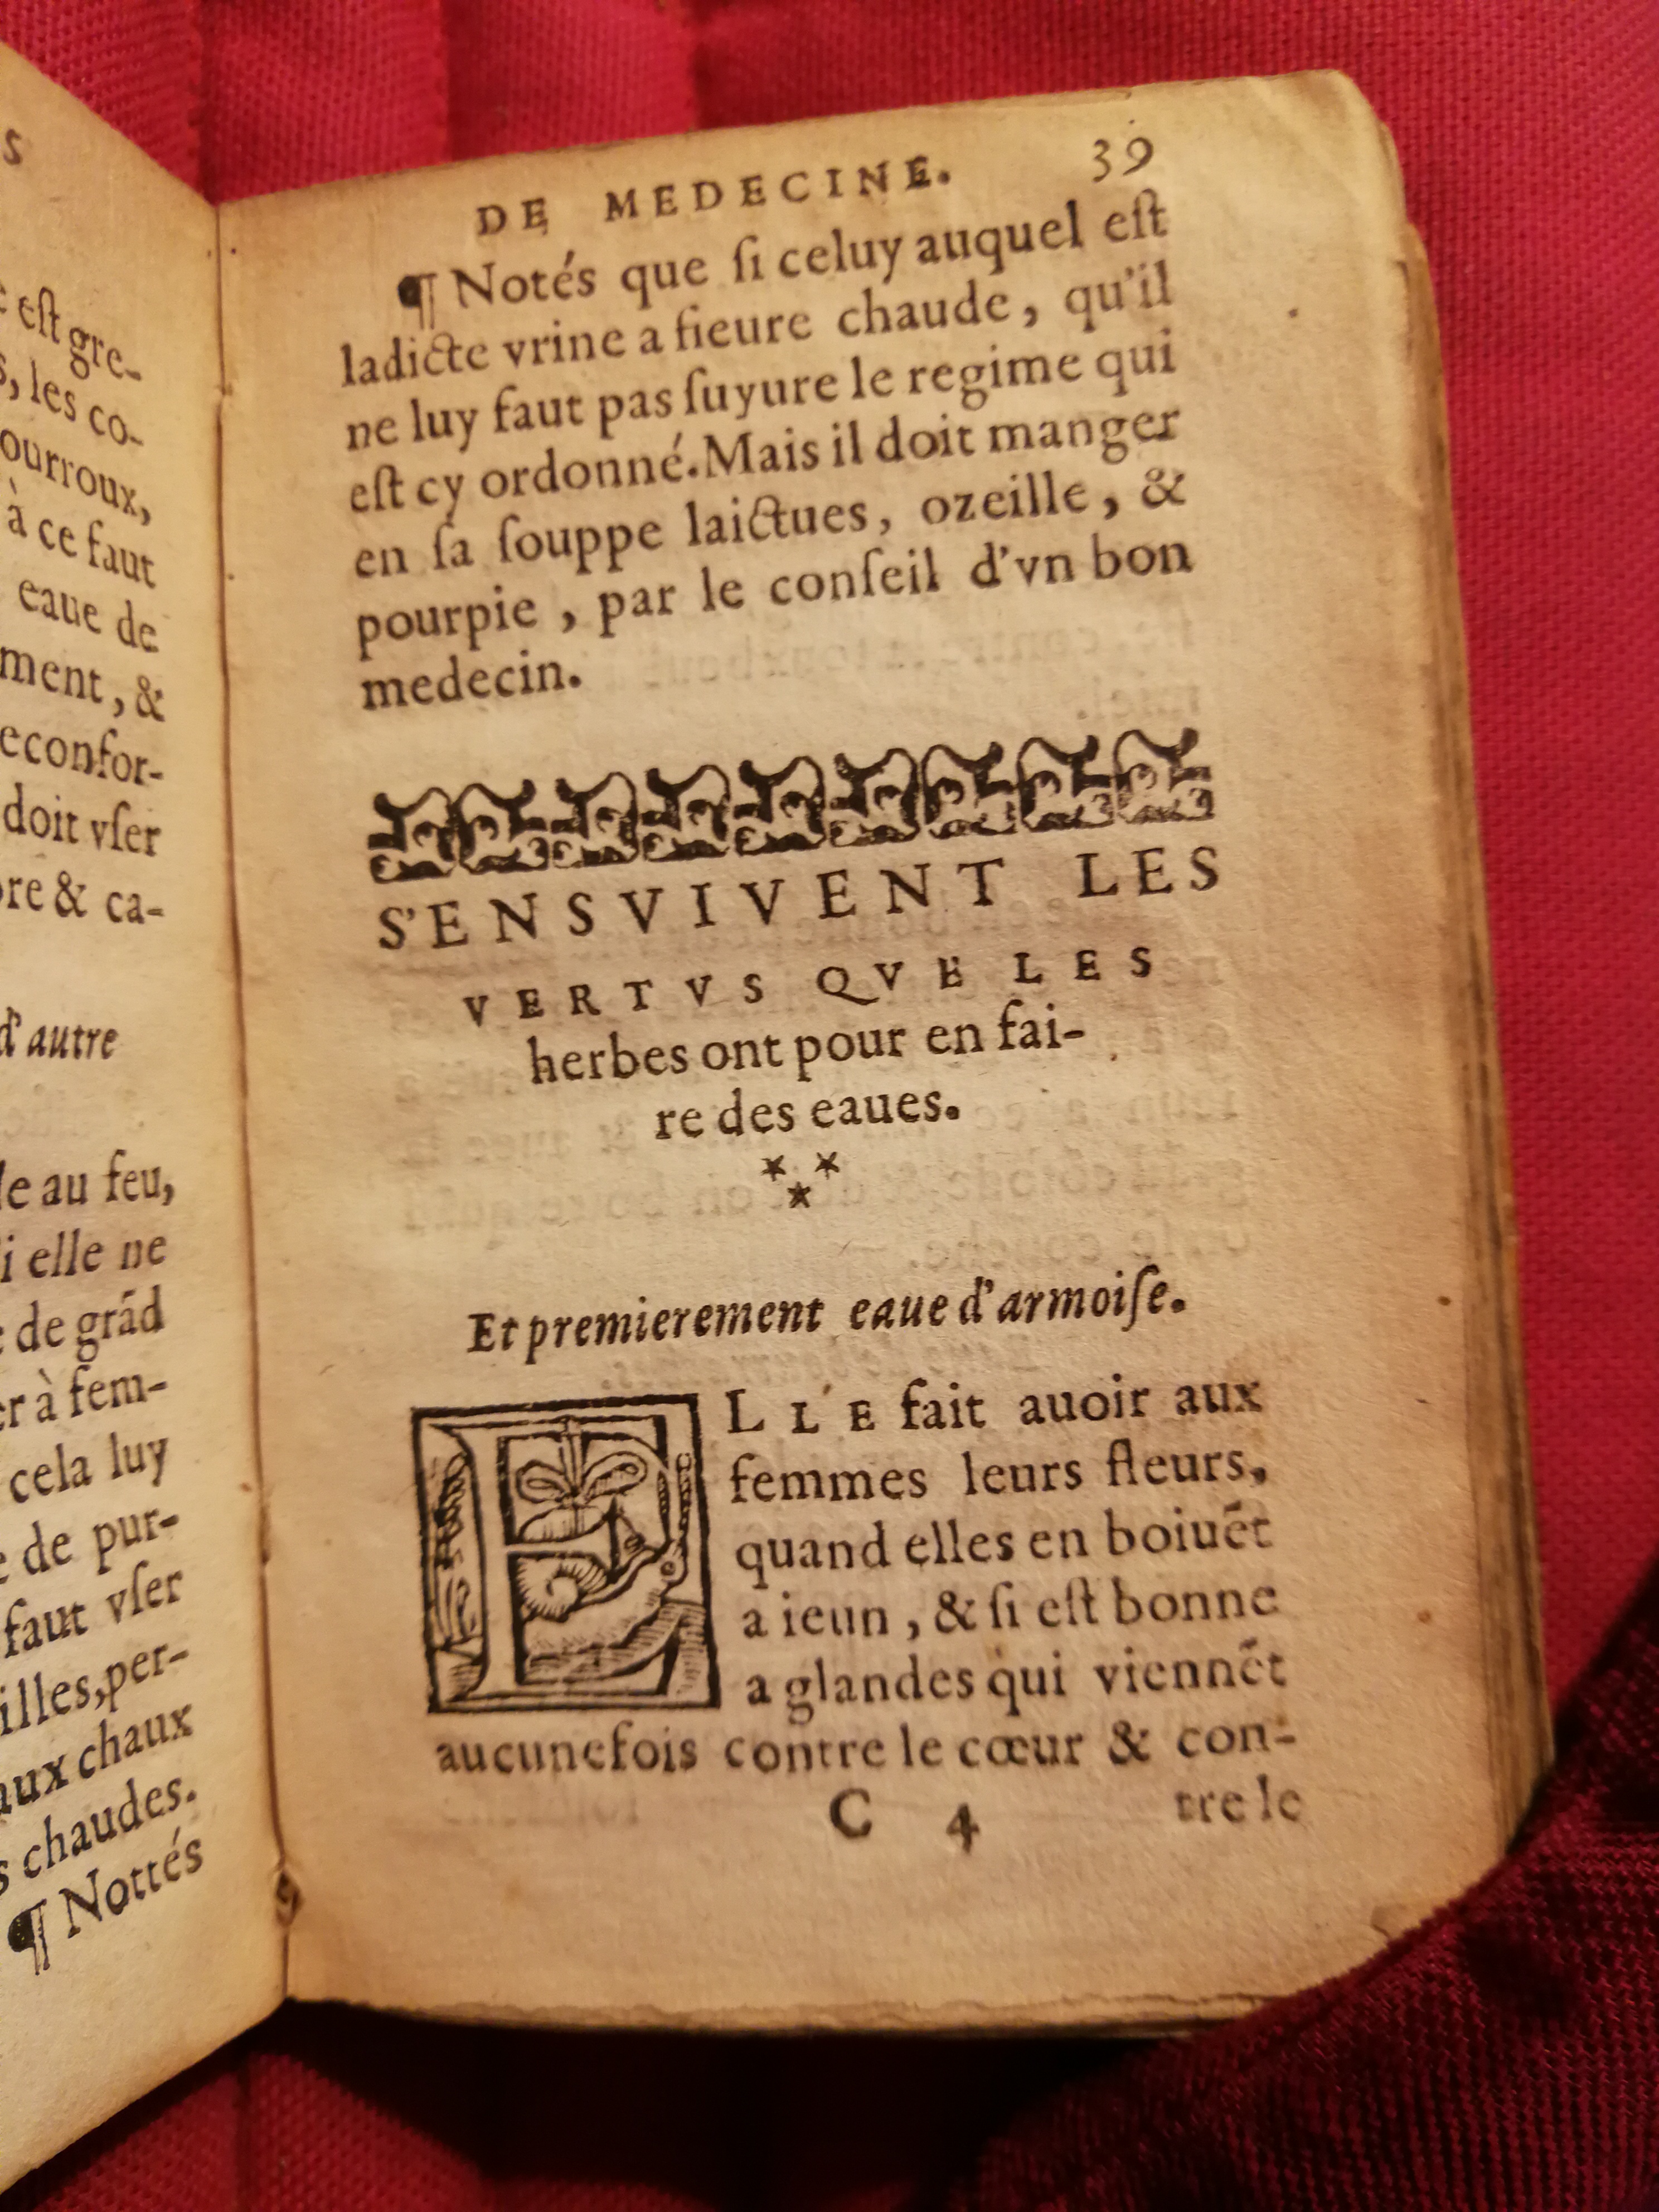 s
est gre-
, les co-
ourroux,
à ce faut
eaue de
ment, &
econfor-
doit vſer
re & ca-
d'autre
le au feu,
i elle ne
de grãd
er à fem-
cela luy
de pur-
faut vſer
illes, per-
aux chaux
s chaudes.
¶ Nottés
DE MEDECINE. 39
¶ Notés que ſi celuy auquel eſt
ladicte vrine a fieure chaude, qu'il
ne luy faut pas ſuyure le regime qui
eſt cy ordonné. Mais il doit manger
en ſa ſouppe laictues, ozeille, &
pourpie, par le conſeil d'vn bon
medecin.
S'ENSVIVENT LES
VERTVS QVE LES
herbes ont pour en fai-
re des eaues.
Et premierement eaue d'armoiſe.
ELLE fait auoir aux
femmes leurs fleurs,
quand elles en boiuẽt
a ieun, & ſi eſt bonne
a glandes qui viennẽt
aucunefois contre le cœur & con-
C 4 tre le